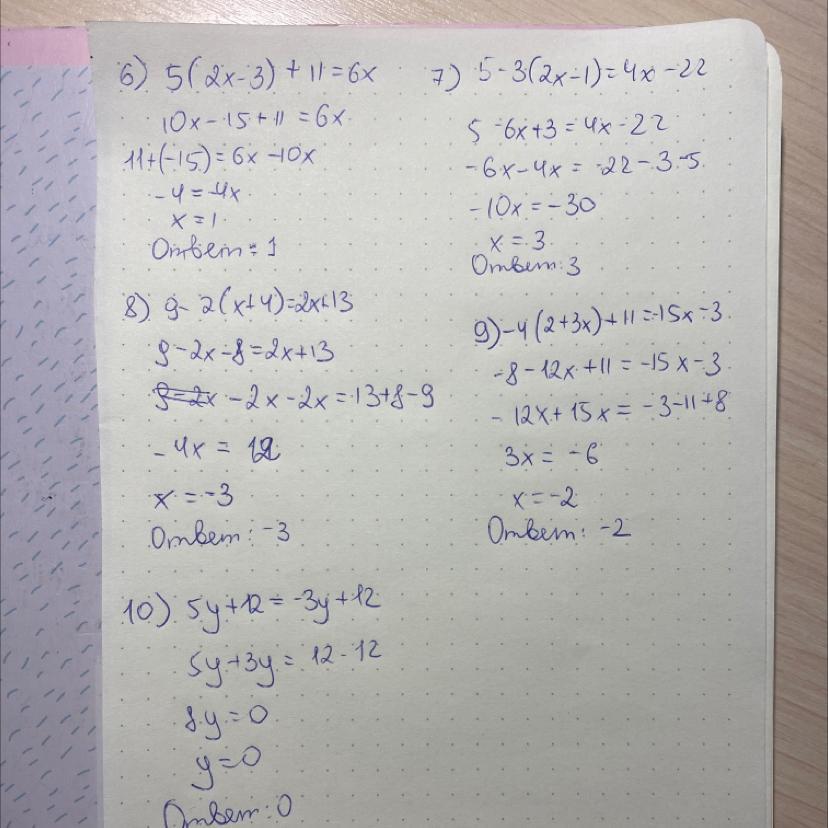 6) 5(2x-3)+11=6x
10x-15+11=6x
11+(-15)=6x-10x
-4=-4x
x=1
Ответ: 1
7) 5-3(2x-1)=4x-22
5-6x+3=4x-22
-6x-4x=-22-3-5
-10x=-30
x=3
Ответ: 3
8) 9-2(x+4)=2x+13
9-2x-8=2x+13
9-2x -2x-2x=13+8-9
-4x=12
x=-3
Ответ: -3
9) -4(2+3x)+11=-15x-3
-8-12x+11=-15x-3
-12x+15x=-3-11+8
3x=-6
x=-2
Ответ: -2
10) 5y+12=-3y+12
5y+3y=12-12
8y=0
y=0
Ответ: 0